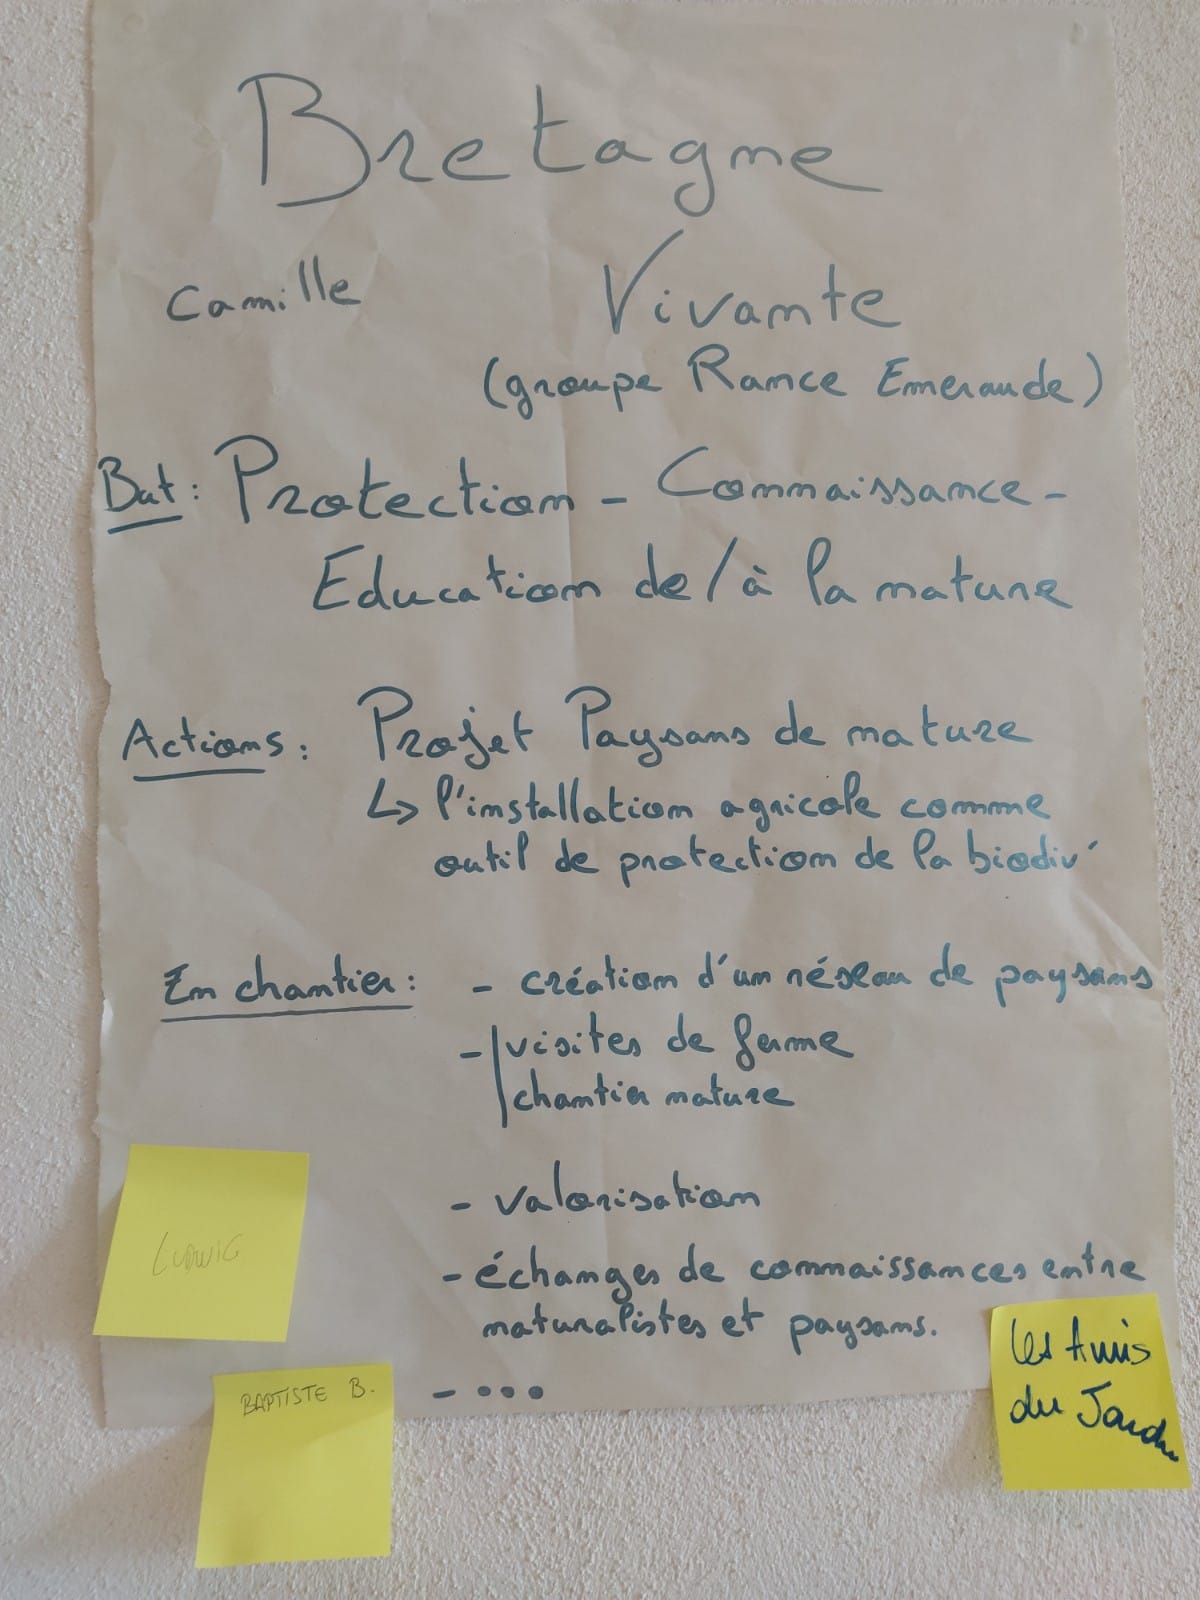 Bretagne
Camille
Vivante
(groupe Rance Emeraude)
But : Protection - Connaissance -
Education de/à la nature
Actions : Projet Paysans de nature
↳ l'installation agricole comme
outil de protection de la biodiv'
En chantier : - création d'un réseau de paysans
- visites de ferme
chantier nature
- valorisation
- échanges de connaissances entre
naturalistes et paysans.
- ...
LUDWIG
BAPTISTE B.
Les Amis
du Jardin